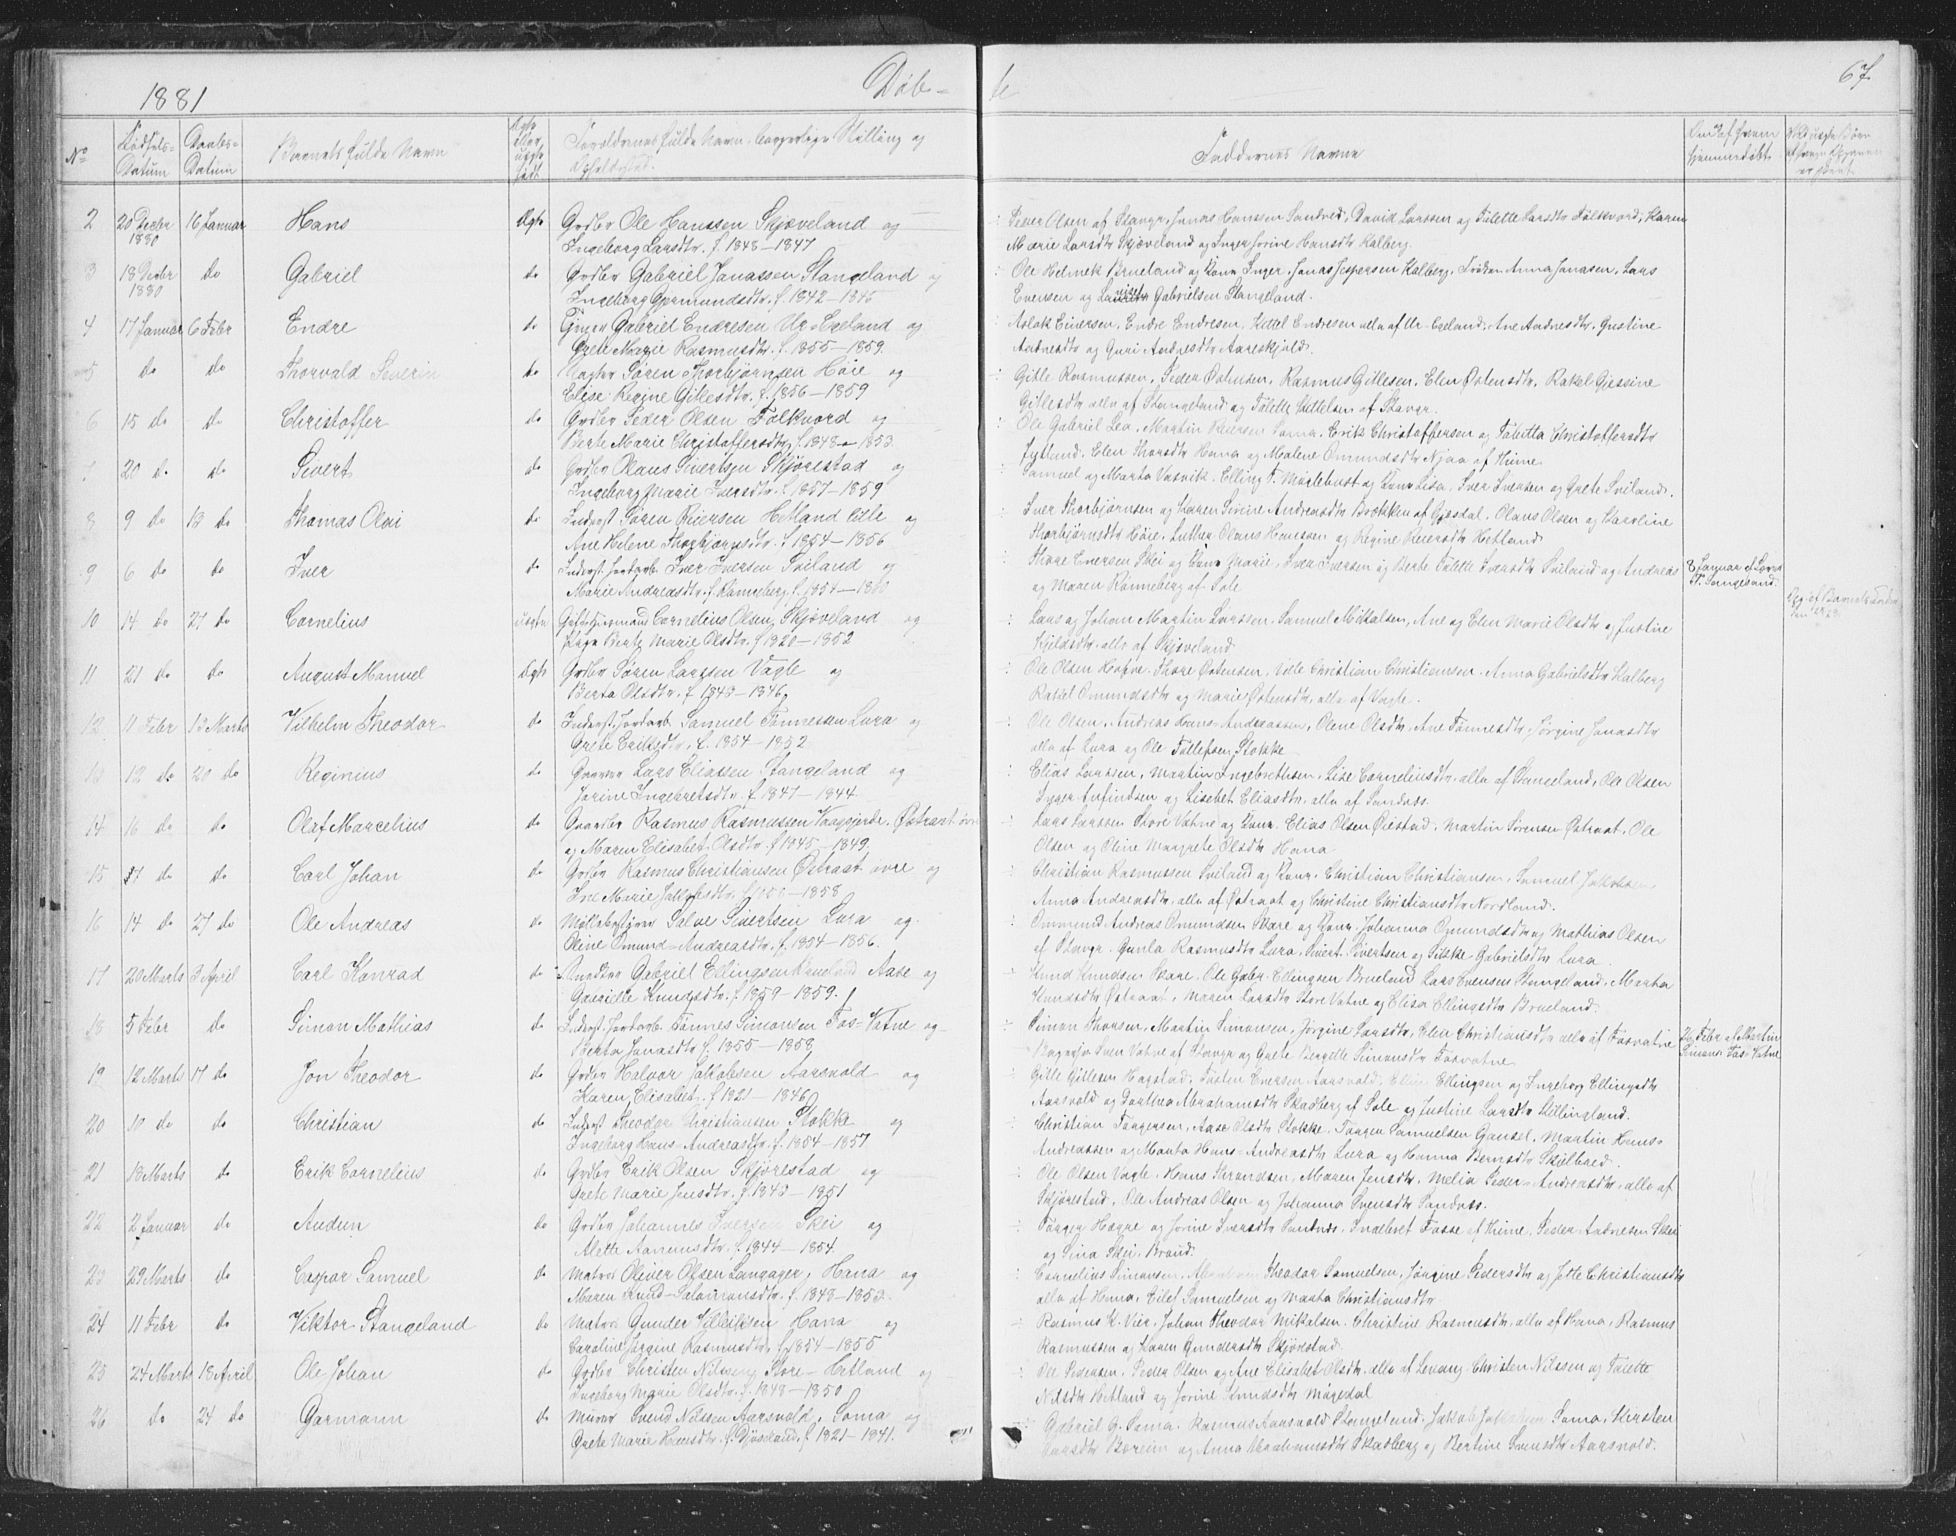 1881 Døb- te 67
No Fødsels- Datum Daabs- Datum Barnets fulde Navn Forældrenes fulde Navn, borgerlige Stilling og Opholdssted Faddernes Navne
2 20 Decbr 1880 16 Januar Hans Ægte Grdbr Ole Hanssen Skjæveland og
Ingeborg Larsdtr. f. 1848 – 1847
Peder Olsen af Stavgr, Jonas Hanssen Sandved, David Larssen og Tolette Larsdtr Folkvord, Karen
Marie Larsdtr Skjæveland og Inger Jorine Hansdtr Kalberg.
3 18 Decbr 1880 do Gabriel do Grdbr Gabriel Jonassen Stangeland og
Ingeborg Gormundsdtr. f. 1842 – 1845
Ole Helmik Brueland og Kone Inger, Jonas Jespersen Kalberg, Frøken Anna Jonasen, Lars
Evensen og Gabrielsen Stangeland.
4 17 Januar 6 Febr Endre do Gabriel Endresen Ur-Egeland og
Grete Marie Rasmusdtr. f. 1855 – 1859.
Aslak Einersen, Endre Endresen, Kittel Endresen alle af Ur-Egeland, Ane Aadnesdtr, Gustine
Aadnesdtr og Guri Aadnesdtr Aareskjold.
5 do do Thorvald Severin do Søren Thorbjørnsen Høie og
Elise Regine Gillesdtr. f. 1856 – 1859
Gitle Rasmussen, Peder Østensen, Rasmus Gillesen, Elen Østensdtr, Rakel Gjessine
Gillesdtr alle af Stangeland og Tolette Kittelsen af Stavgr.
6 15 do do Christoffer do Grdbr Peder Olsen Folkvord og
Berte Marie Christoffersdtr f. 1848 – 1853.
Ole Gabriel Lea, Martin Reiersen Soma, Erik Christoffersen og Tolitta Christoffersdtr
Jytlund, Elen Thorsdtr Hana og Malene Omundsdtr Njaa af Thime.
7 20 do do Sivert do Grdbr Olaus Sivertsen Skjørestad og
Ingeborg Marie Iversdtr. f. 1857 – 1859
Samuel og Marta Vasvik, Elling T. Møglebust og Kone Lisa, Iver Iversen og Grete Sviland.
8 9 do 13 do Thomas Olai do Inderst Søren Reiersen Hetland Lille og
Ane Helene Thorbjørnsdtr. f. 1854 – 1856
Iver Thorbjørnsen og Karen Serine Andreasdtr Brekken af Gjesdal, Olaus Olsen og Karoline
Thorbjørnsdtr Høie, Luther Olaus Hanssen og Regine Reiersdtr Hetland
9 6 do do Iver do Inderst Jordarb. Iver Iversen Sviland og
Marie Andreasdtr. f. Rønneberg f. 1854 – 1860
Thore Eversen Skei og Kone Marie, Iver Iversen og Berte Tolette Iversdtr Sviland og Andreas
og Maren Rønneberg af Sole
8 Januar af Lærer
10 14 do 27 do Cornelius uægte Gift Cornelius Olsen Skjæveland og
Pige Berte Marie Olsdtr f. 1820 – 1852
Lars og Johan Martin Larssen, Samuel Mikalsen, Ane og Elen Marie Olsdtr og Justine
Kjeldsdtr alle af Skjæveland.
11 21 do do August Manuel Ægte Grdbr Søren Larssen Vagle og
Berta Olsdtr. f. 1843 – 1846.
Ole Olsen Hofve, Thore Østensen, Christian Christiansen, Anna Gabrielsdtr Kalberg
Rakel Omundsdtr og Marie Østensdtr, alle af Vagle.
12 11 Febr 13 Marts Vilhelm Theodor do Inderst Jordarb. Samuel Tønnesen Lura og
Grete Eriksdtr. f. 1854 – 1852
Ole Olsen, Andreas Hans-Andreassen, Olene Olsdtr, Ane Tønnesdtr, Jørgine Jonasdtr
alle af Lura og Ole Tollefsen Stokke
13 12 do 20 do Reginius do Lars Eliassen Stangeland og
Jorine Ingebretsdtr. f. 1847 – 1844.
Elias Larssen, Martin Ingebrethsen, Lise Corneliusdtr, alle af Stangeland, Ole Olsen
Inger Arfindsen og Lisebet Eliasdtr, alle af Sandnæs.
14 16 do do Olaf Marcelius do Rasmus Rasmussen Østraat øvre
og Maren Elisabet Olsdtr. f 1845 – 1849.
Lars Larssen Store Vatne og Kone, Elias Olsen Øiestad, Martin Sørensen Østraat, Ole
Olsen og Oline Margrete Olsdtr Hana
15 17 do do Carl Johan do Grdbr Rasmus Christiansen Østraat øvre og
Marie Jakobsdtr. – 1858.
Christian Rasmussen Sviland og Kone, Christian Christiansen, Samuel Jakobsen
Anna Andreasdtr, alle af Østraat og Christine Christiansdtr Nordland.
16 14 do 27 do Ole Andreas do Møllebestyrer Salve Sivertsen Lura og
Oline Omund-Andreasdtr. f. 1854 – 1856.
Ommund Andreas Omundsen Skare og Kone, Johanna Omundsdtr og Mathias Olsen
af Stavgr, Gunla Rasmusdtr Lura, Sivert Sivertsen og Silkke Gabrielsdtr Lura.
17 20 Marts 3 April Carl Konrad do Gabriel Ellingsen Brueland Aase og
Gabrielle Knudsdtr. f. 1859 – 1859.
Knud Knudsen Skare, Ole Gabr. Ellingsen Brueland, Lars Evensen Stangeland, Marta
Knudsdtr Østraat, Maren Larsdtr Store Vatne og Elisa Ellingsdtr Brueland.
18 5 Febr do Simon Mathias do Inderst Jordarb. Tønnes Simonsen Fos-Vatne og
Berta Jonasdtr f. 1855 – 1858
Simon Thorsen, Martin Simonsen, Jørgine Larsdtr, Elen Christiansdtr alle af Fosvatne
Sven Vatne af Stavgr og Grete Bergitte Simonsdtr Fosvatne
26 Febr af Martin
Simons. Fos-Vatne
19 12 Marts 17 do Jon Theodor do Grdbr Halvor Jakobsen Aarsvold og
Karen Elisabet f. 1821 – 1846
Gitle Gitlesen Hogstad, Torsten Eversen Aarsvold, Ellingsen og Ingeborg Ellingsdtr
Aarsvold og Dorthea Abrahamsdtr Skadberg af Sole og Justine Larsdtr Killingland.
20 10 do do Christian do Inderst Theodor Christiansen Stokke og
Ingeborg Hans-Andreasdtr. f. 1854 – 1857
Christian Taagensen, Aase Olsdtr Stokke, Taagen Samuelsen Gansel, Martin Hans-
Andreassen og Marta Hans-Andreasdtr Lura og Hanna Berntsdtr Skilbred.
21 13 Marts do Erik Cornelius do Grdbr Erik Olsen Skjørestad og
Grete Marie Jensdtr. f. 1843 – 1851
Ole Olsen Vagle, Hans Thrundsen, Maren Jensdtr, Melia Peder-Andreasdtr, alle af
Skjørestad, Ole Andreas Olsen og Johanna Svensdtr Sandnæs.
22 2 Januar do Audun do Grdbr Johannes Iversen Skei og
Alette Aanensdtr. f. 1844 – 1854.
Hegre og Jorine Iversdtr Sandnæs, Ingebret Fosse af Thime, Peder Aadnesen Skei
og Sina Skei, Braud.
23 29 Marts do Caspar Samuel do Matros Oliver Olsen Langager, Hana og
Maren Knud-Salamonsdtr. f. 1848 – 1853.
Cornelius Simonsen, Theodor Samuelsen, Jørgine Pedersdtr og Jette Christiansdtr
alle af Hana, Eilef Samuelsen og Marta Christiansdtr
24 11 Febr do Viktor Stangeland do Matros Gunder Villeiksen Hana og
Caroline Jørgine Rasmusdtr. f. 1854 – 1855
Rasmus K. Vier, Johan Theodor Mikalsen, Christine Rasmusdtr, alle af Hana, Rasmus
Rasmussen og Karen Gundersdtr Skjørestad.
25 24 Marts 18 April Ole Johan do Grdbr Christen Nilssen Store-Hetland og
Ingeborg Marie Olsdtr. f. 1848 – 1850
Ole Pedersen, Peder Olsen og Ane Elisabet Olsdtr. alle af Levang, Christen Nilssen og Tolette
Nilsdtr Hetland og Jorine Knudsdtr Møgedal
26 do 24 do Garmann do Murer Svend Nilssen Aarsvold, Soma og
Grete Marie Hansdtr. f. Gjøseland, f. 1821 – 1841.
Gabriel G. Soma, Rasmus Aarsvold Stangeland, Jakob Jakobsen Soma, Kirsten
Larsdtr Bærum og Anna Abrahamsdtr Skadberg og Bertine Svensdtr Aarsvold.